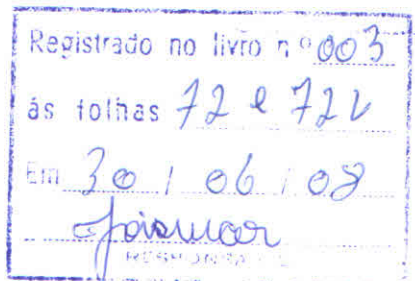 Registrado no livro nº 003
ás folhas 72 e 72v
Em 30 / 06 / 08